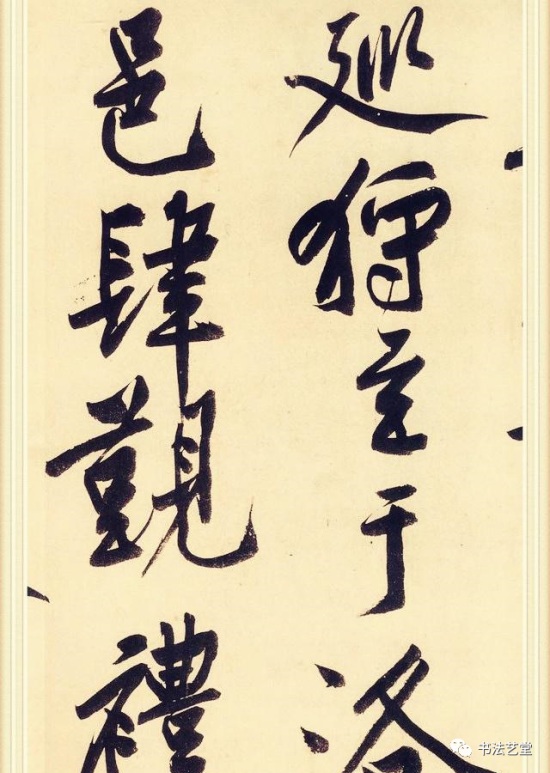 廵狩至于洛
邑肆覲禮
书法艺堂